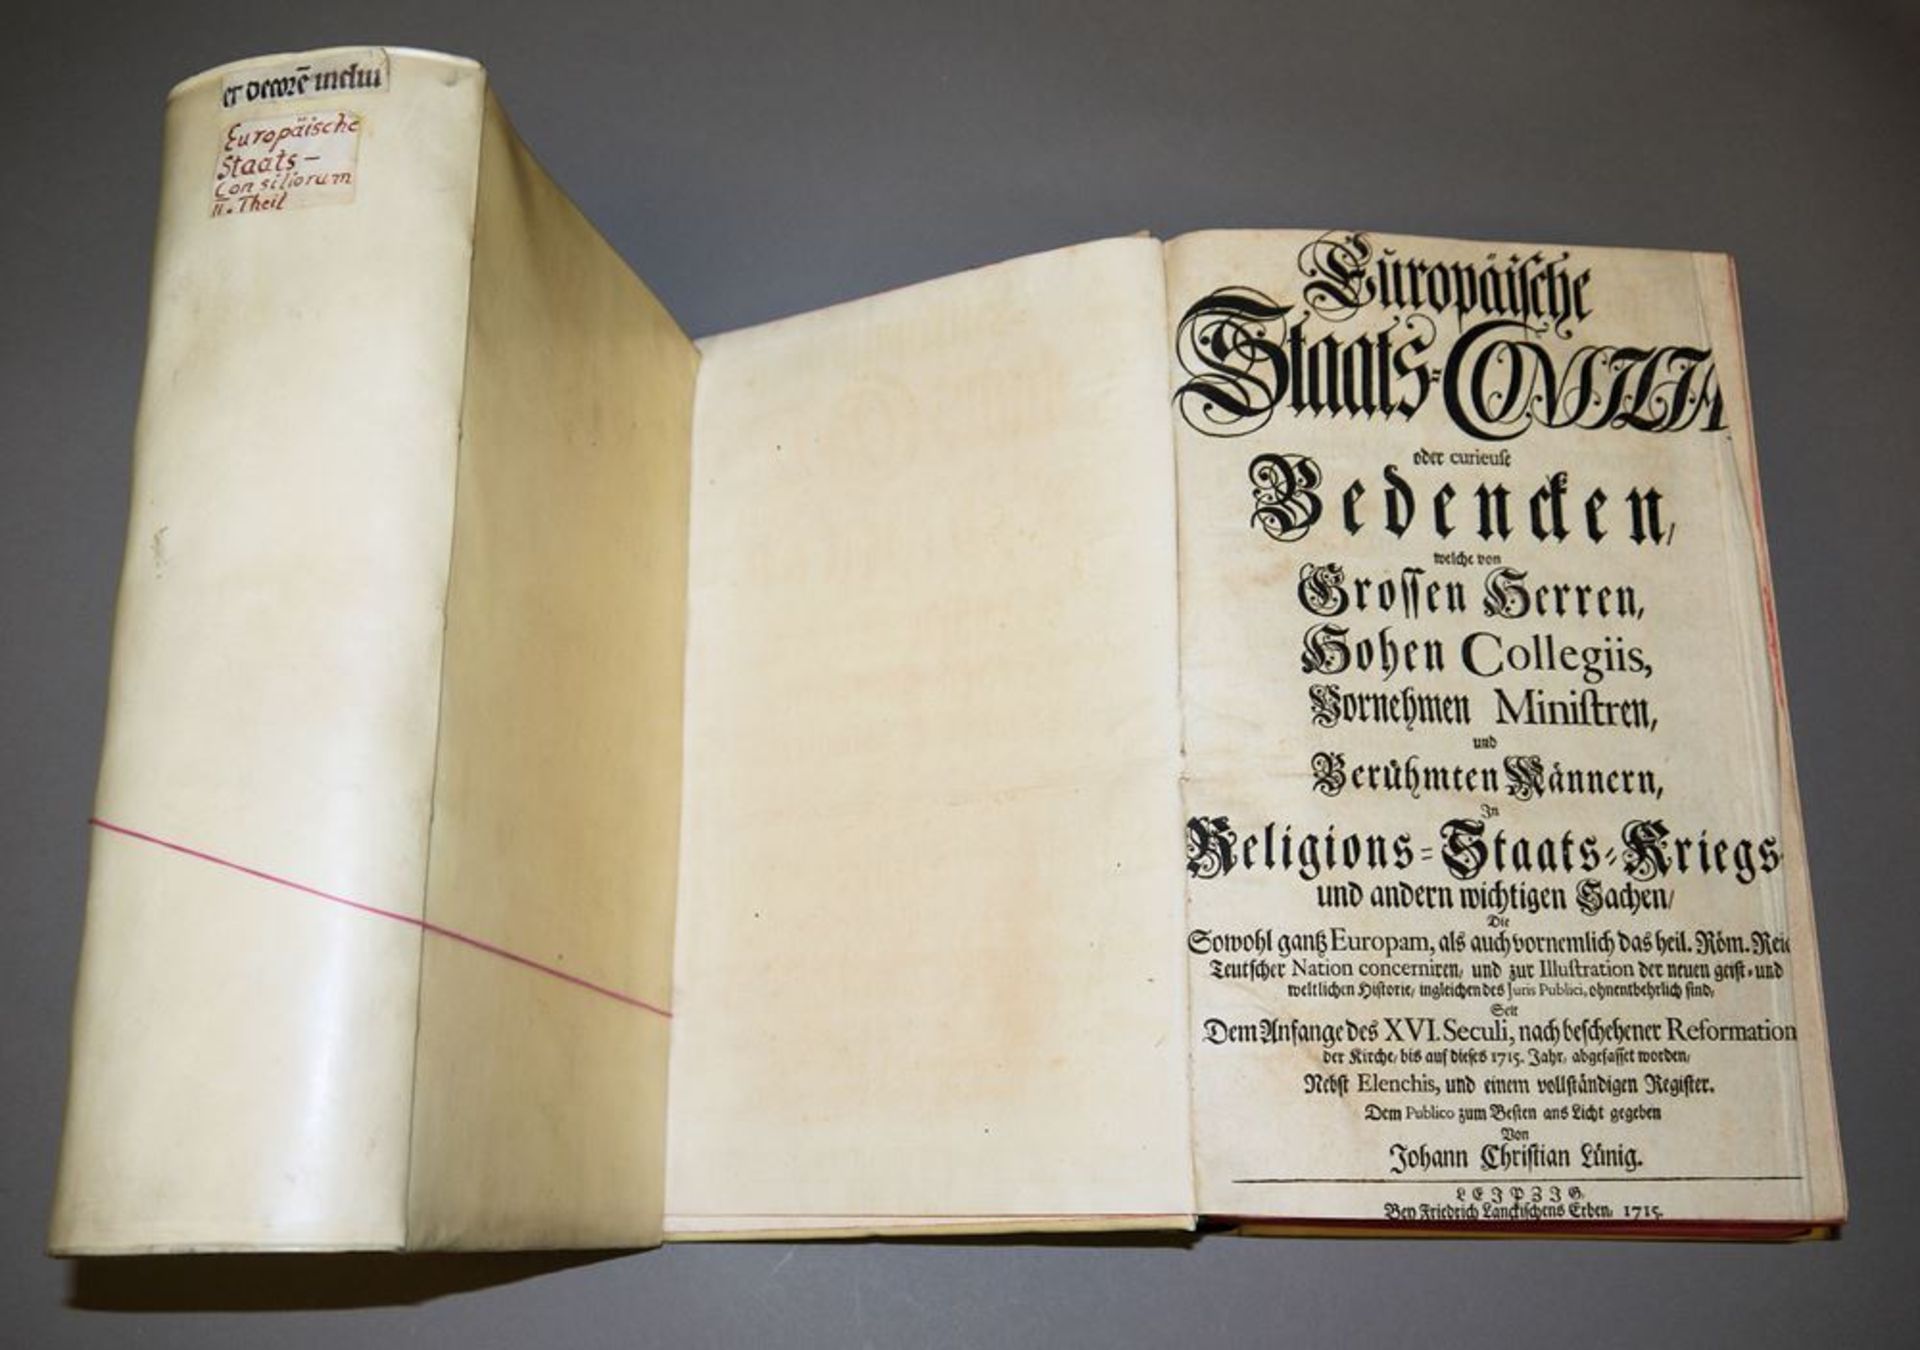 er decorē inclui
Europäische
Staats-
Consiliorum
II. Theil
Europäische
Staats-CONSILIA
oder curieuse
Bedencken,
welche von
Grossen Herren,
Hohen Collegiis,
Vornehmen Ministren,
und
Berühmten Männern,
In
Religions-Staats-Kriegs
und andern wichtigen Sachen/
Die
Sowohl gantz Europam, als auch vornemlich das heil. Röm. Reic
Teutscher Nation concerniren, und zur Illustration der neuen geist- und
weltlichen Historie, ingleichen des Juris Publici, ohnentbehrlich sind,
Seit
Dem Anfange des XVI. Seculi, nach beschehener Reformation
der Kirche, bis auf dieses 1715. Jahr, abgefasset worden,
Nebst Elenchis, und einem vollständigen Register.
Dem Publico zum Besten ans Licht gegeben
Von
Johann Christian Lünig.
LEIPZIG,
Bey Friedrich Lanckischens Erben, 1715.